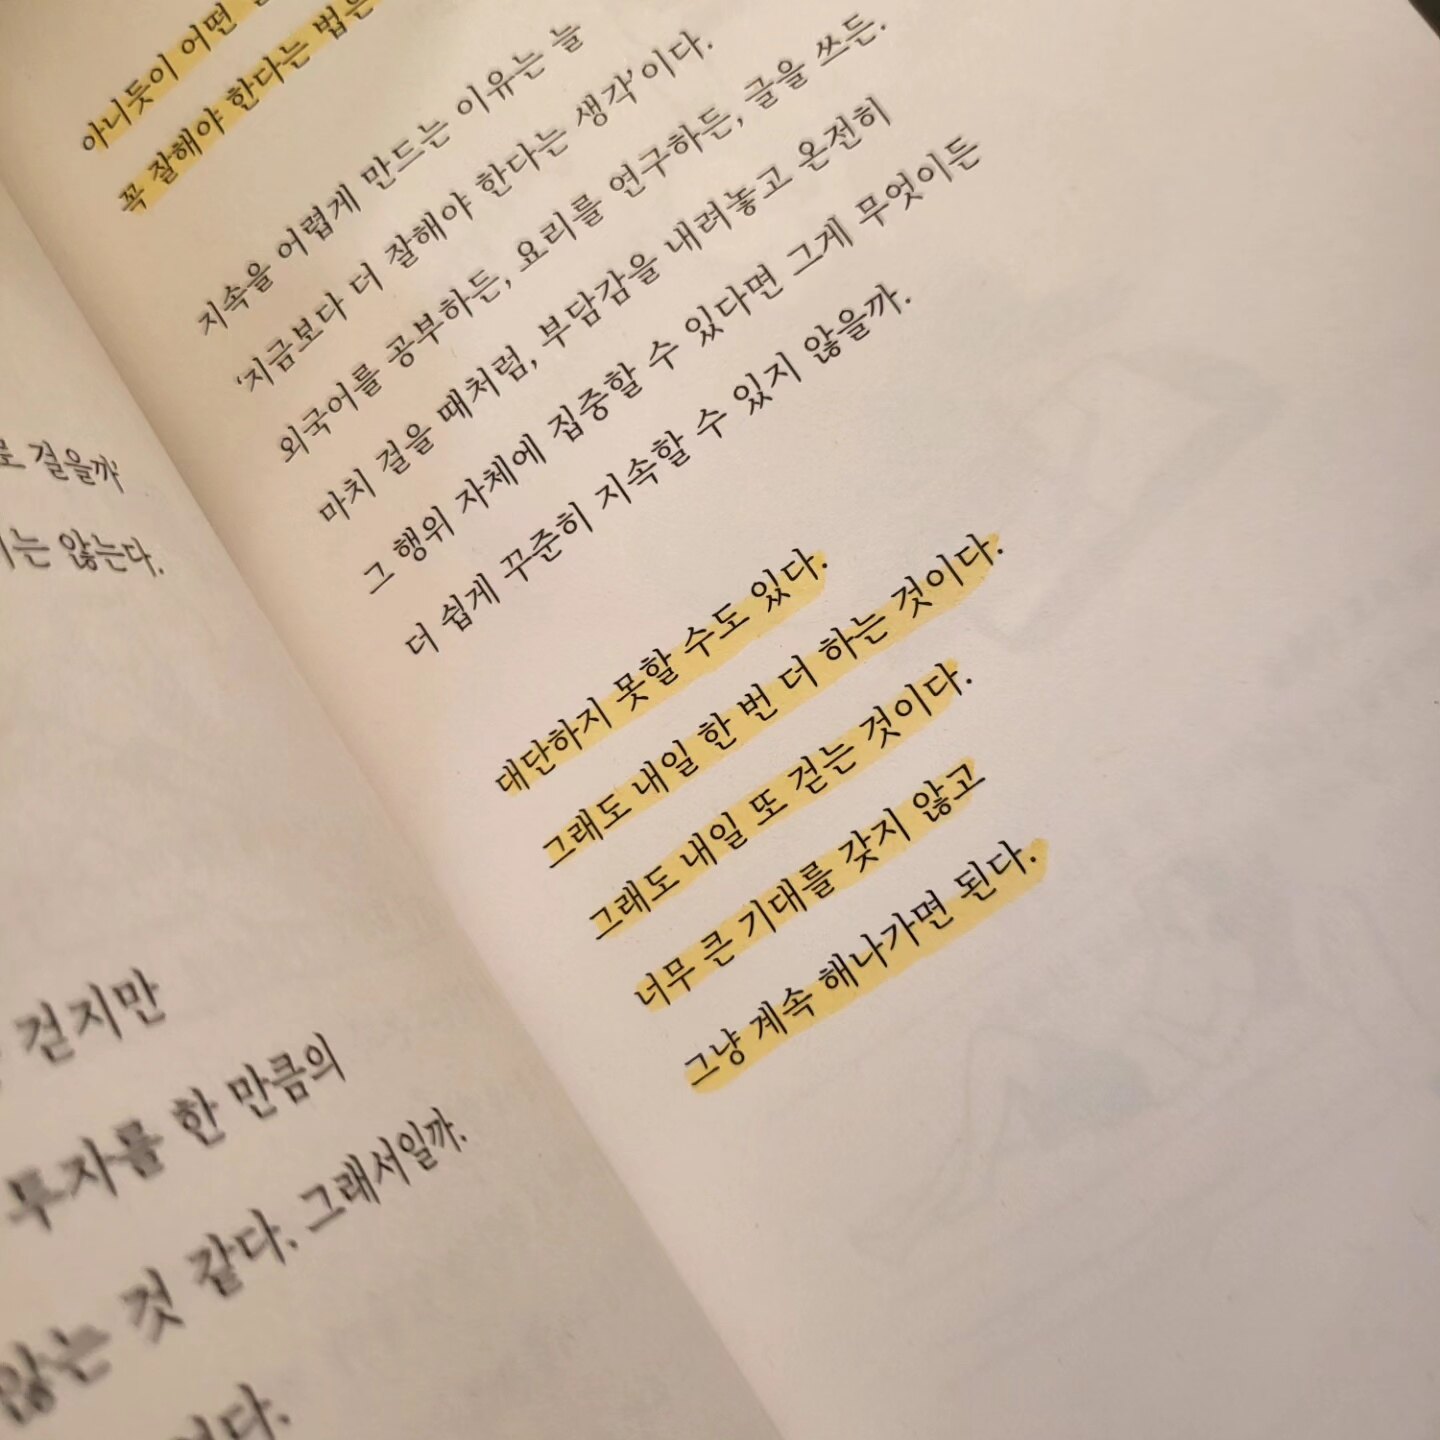 로 걸을까
않는다.
걷지만
투자를 한 만큼의
않는 것 같다. 그래서일까.
아니듯이 어떤
꼭 잘해야 한다는 법은
지속을 어렵게 만드는 이유는 늘
'지금보다 더 잘해야 한다는 생각'이다.
외국어를 공부하든, 요리를 연구하든, 글을 쓰든.
마치 걸을 때처럼, 부담감을 내려놓고 온전히
그 행위 자체에 집중할 수 있다면 그게 무엇이든
더 쉽게 꾸준히 지속할 수 있지 않을까.
대단하지 못할 수도 있다.
그래도 내일 한 번 더 하는 것이다.
그래도 내일 또 걷는 것이다.
너무 큰 기대를 갖지 않고
그냥 계속 해나가면 된다.